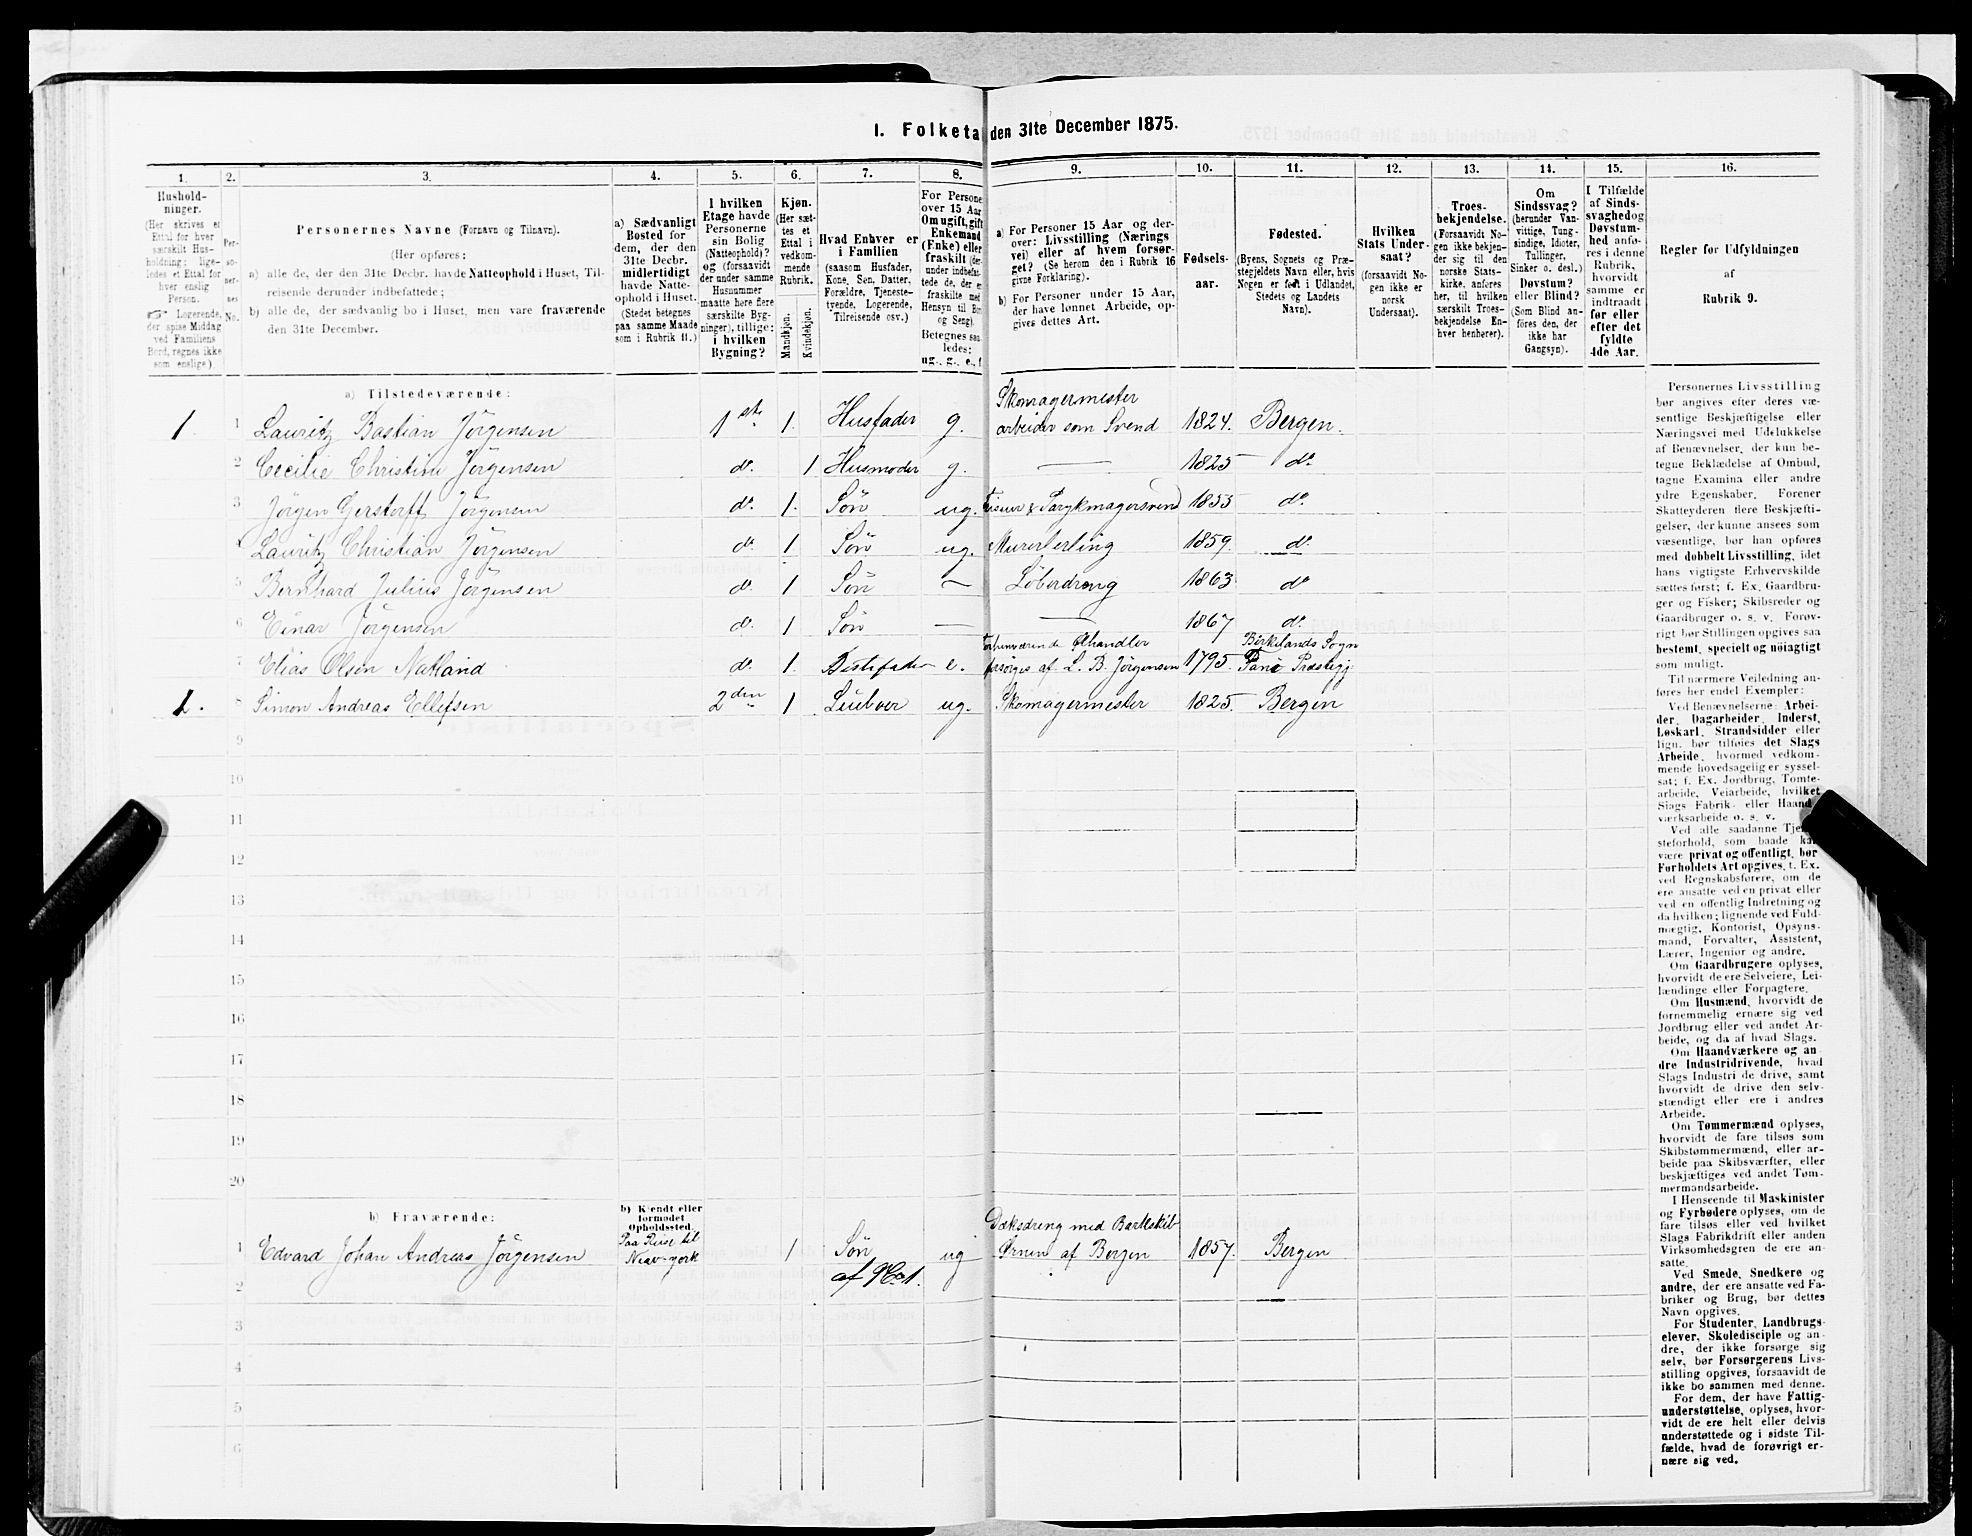 1. Folketa den 31te December 1875.
1. 2. 3. 4. 5. 6. 7. 8. 9. 10. 11. 12. 13. 14. 15. 16.
Hushold-
ninger.
(Her skrives et
Ettal for hver
særskilt Hus-
holdning; lige-
ledes et Ettal for
hver enslig
Person.
Logerende,
der spise Middag
ved Familiens
Bord, regnes ikke
som enslige).
Per-
so-
ner-
nes
No.
Personernes Navne (Fornavn og Tilnavn).
(Her opføres:
a) alle de, der den 31te Decbr. havde Natteophold i Huset, Til-
reisende derunder indbefattede;
b) alle de, der sædvanlig bo i Huset, men vare fraværende
den 31te December.
a) Sædvanligt
Bosted for
dem, der den
31te Decbr.
midlertidigt
havde Natte-
ophold i Huset.
(Stedet betegnes
paa samme Maade
som i Rubrik 11.)
I hvilken
Etage havde
Personerne
sin Bolig
(Natteophold)?
og (forsaavidt
der under samme
Husnummer
maatte høre flere
særskilte Byg-
ninger), tillige:
i hvilken
Bygning?
Kjøn.
(Her sæt-
tes et
Ettal i
vedkom-
mende
Rubrik.
Mandkjøn.
Kvindekjøn.
Hvad Enhver er
i Familien
(saasom Husfader,
Kone, Søn, Datter,
Forældre, Tjeneste-
tyende, Logerende,
Tilreisende osv.)
For Persone
over 15 Aar
Om ugift, gift
Enkemand
(Enke) eller
fraskilt (der-
under indbefat-
tede de, der er
fraskilte med
Hensyn til Bo
og Seng).
Betegnes saa
ledes:
ug., g., e., f
a) For Personer 15 Aar og der-
over: Livsstilling (Nærings
vei) eller af hvem forsør-
get? (Se herom den i Rubrik 16
givne Forklaring).
b) For Personer under 15 Aar,
der have lønnet Arbeide, op-
gives dettes Art.
Fødsels-
aar.
Fødested.
(Byens, Sognets og Præ-
stegjeldets Navn eller, hvis
Nogen er født i Udlandet,
Stedets og Landets
Navn).
Hvilken
Stats Under-
saat?
(forsaavidt No-
gen ikke er
norsk
Undersaat).
Troes-
bekjendelse.
(Forsaavidt No-
gen ikke bekjen-
der sig til den
norske Stats-
kirke, anføres
her, til hvilken
særskilt Troes-
bekjendelse En-
hver henhører).
Om
Sindssvag?
(herunder Van-
vittige, Tung-
sindige, Idioter,
Tullinger,
Sinker o. desl.)
Døvstum?
eller Blind?
(Som Blind an-
føres den, der
ikke har
Gangsyn).
I Tilfælde
af Sinds-
svaghed og
Døvstum-
hed anfø-
res i denne
Rubrik,
hvorvidt
samme er
indtraadt
før eller
efter det
fyldte
4de Aar.
Regler for Udfyldningen
af
Rubrik 9.
a) Tilstedeværende:
Skomagermester
1. 1 Lauritz Bastian Jörgensen 1ste 1. Husfader g. arbeider som Svend 1824. Bergen.
2 Cecilie Christine Jörgensen do. 1 Husmoder g. — 1825 do.
3 Jörgen Gerstorff Jörgensen do. 1. Sön ug. Frisuer & Parykmagersvend 1853 do.
4 Lauritz Christian Jörgensen do. 1 Sön ug. Murerlerling 1859. do.
5 Bernhard Julius Jörgensen do. 1 Sön — Löberdreng 1863 do
6 Einar Jörgensen do. 1 Sön — — 1867 do.
Forhenværende Ølhandler Birkelands Sogn
7 Elias Olsen Natland do. 1. Bestefader e. forsörges af L. B. Jörgensen 1795. Fane Præstegj.
1. 8 Simon Andreas Ellefsen 2den 1 ug. Skomagermester 1825. Bergen
9
10
11
12
13
14
15
16
17
18
19
20
b) Fraværende:
b) Kjendt eller
formodet
Opholdssted.
Paa Reise til Dæksdreng med Barkskib
1 Edvard Johan Andreas Jörgensen New-york 1 Sön ug Ørnen af Bergen 1857. Bergen
2 af No 1.
3
4
5
6
Personernes Livsstilling
bør angives efter deres væ-
sentlige Beskjæftigelse eller
Næringsvei med Udelukkelse
af Benævnelser, der kun be-
tegne Beklædelse af Ombud,
tagne Examina eller andre
ydre Egenskaber. Forener
Skatteyderen flere Beskjæfti-
gelser, der kunne ansees som
væsentlige, bør han opføres
med dobbelt Livsstilling, idet
hans vigtigste Erhvervskilde
sættes først; f. Ex. Gaardbru-
ger og Fisker; Skibsreder og
Gaardbruger o. s. v. Forøv-
rigt bør Stillingen opgives saa
bestemt, specielt og nöiagtigt
som muligt.
Til nærmere Veiledning an-
føres her endel Exempler:
Ved Benævnelserne: Arbei-
der, Dagarbeider, Inderst,
Løskarl, Strandsidder eller
lign. bør tilføies det Slags
Arbeide, hvormed vedkom-
mende hovedsagelig er syssel-
sat; f. Ex. Jordbrug, Tomte-
arbeide, Veiarbeide, hvilket
Slags Fabrik- eller Haand-
værksarbeide o. s. v.
Ved alle saadanne Tje
steforhold, som baade ka
være privat og offentligt, bør
Forholdets Art opgives, t. Ex.
ved Regnskabsførere, om de
ere ansatte ved en privat eller
ved en offentlig Indretning og
da hvilken; lignende ved Fuld-
mægtig, Kontorist, Opsyns-
mand, Forvalter, Assistent,
Lærer, Ingeniør og andre.
Om Gaardbrugere oplyses,
hvorvidt de ere Selveiere, Lei-
lændinge eller Forpagtere.
Om Husmænd, hvorvidt de
fornemmelig ernære sig ved
Jordbrug eller ved andet Ar-
beide, og da af hvad Slags.
Om Haandværkere og an
dre Industridrivende, hvad
Slags Industri de drive, samt
hvorvidt de drive den selv-
stændigt eller ere i andres
Arbeide.
Om Tømmermænd oplyses,
hvorvidt de fare tilsøs som
Skibstømmermænd, eller ar-
beide paa Skibsværfter, eller
beskjæftiges ved andet Tøm-
mermandsarbeide.
I Henseende til Maskinister
og Fyrbødere oplyses, om de
fare tilsøs eller ved hvilket
Slags Fabrikdrift eller anden
Virksomhedsgren de ere an-
satte.
Ved Smede, Snedkere og
andre, der ere ansatte ved Fa-
briker og Brug, bør dettes
Navn opgives.
For Studenter, Landbrugs-
elever, Skoledisciple og an-
dre, der ikke forsørge sig
selv, bør Forsørgerens Livs-
stilling opgives, forsaavidt de
ikke bo sammen med denne.
For dem, der have Fattig-
understøttelse, oplyses, hvor-
vidt de ere helt eller delvis
understøttede og i sidste Til-
fælde, hvad de forøvrigt er-
nære sig ved.